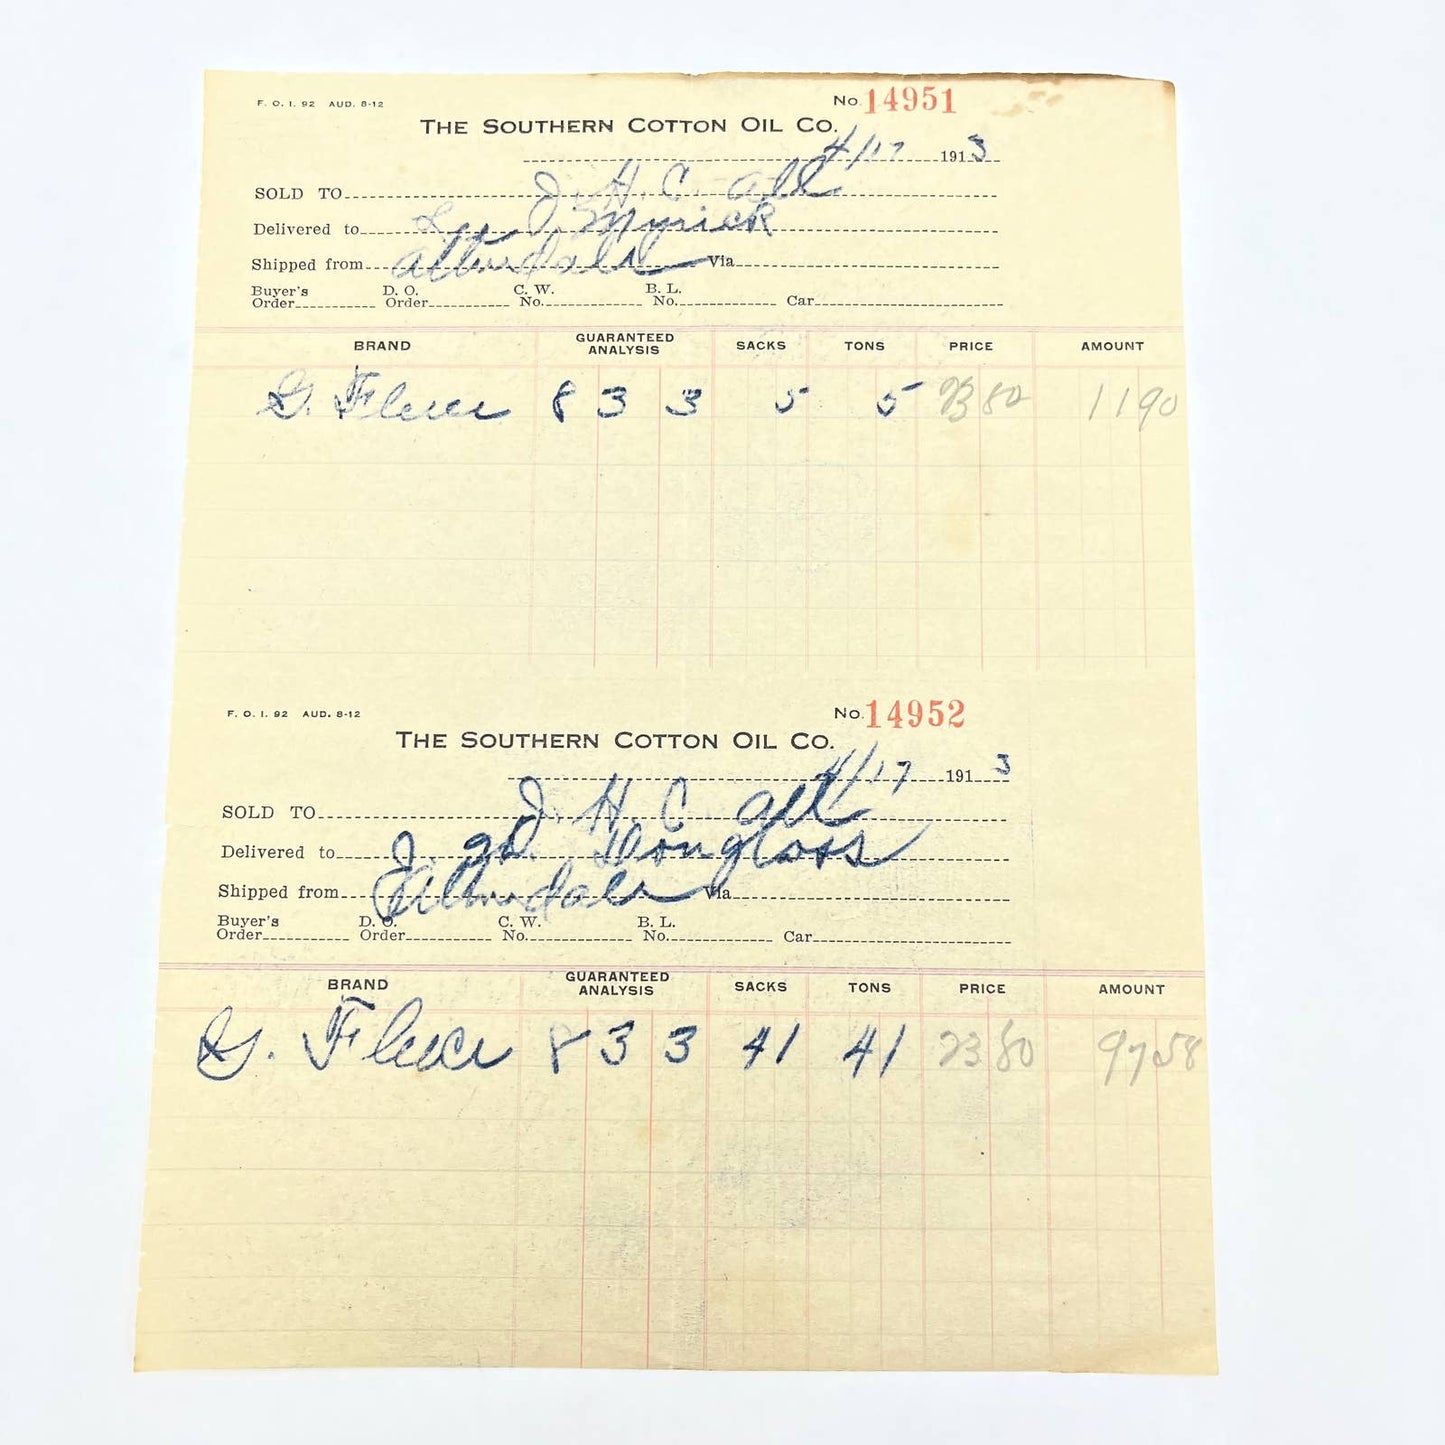 F. O. I. 92 AUD. 8-12 No. 14951
THE SOUTHERN COTTON OIL CO.
4/17 1913
SOLD TO J. H. C. 
Delivered to J. Myrick
Shipped from Via
Buyer's D. O. C. W. B. L.
Order Order No. No. Car
BRAND GUARANTEED ANALYSIS SACKS TONS PRICE AMOUNT
G. Fleece 8 3 3 5 5 23 80 11 90
F. O. I. 92 AUD. 8-12 No. 14952
THE SOUTHERN COTTON OIL CO.
4/17 1913
SOLD TO J. H. C.
Delivered to J. Douglass
Shipped from Via
Buyer's D. O. C. W. B. L.
Order Order No. No. Car
BRAND GUARANTEED ANALYSIS SACKS TONS PRICE AMOUNT
G. Fleece 8 3 3 41 41 23 80 97 58